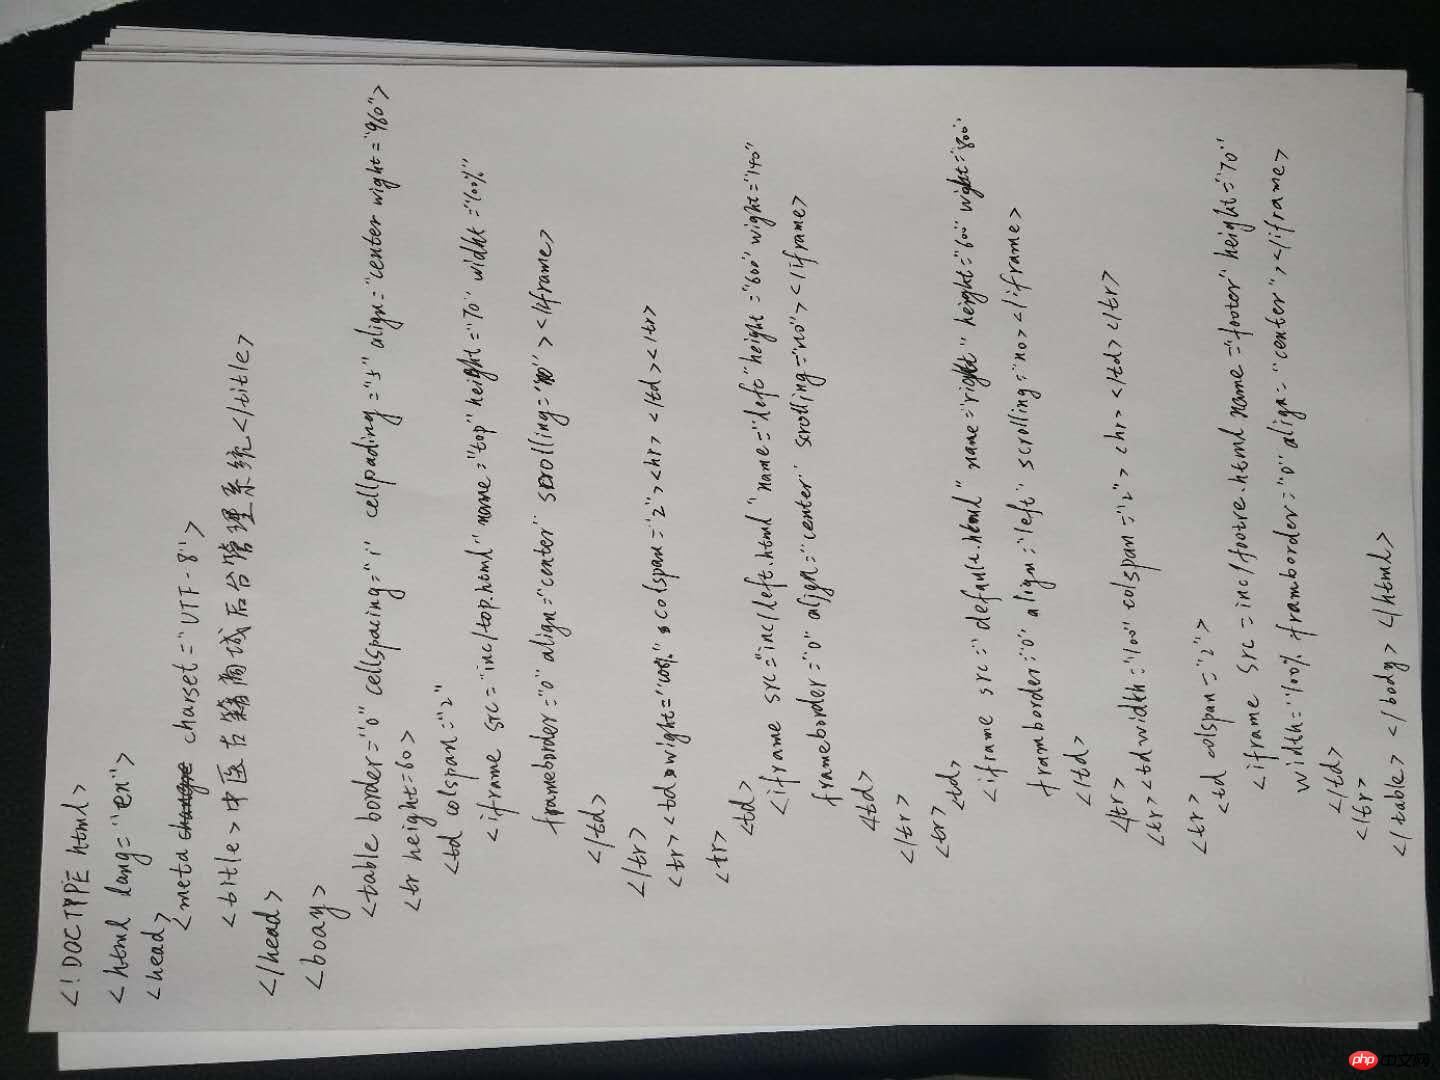 <!DOCTYPE html>
<html lang="en">
<head>
<meta charset="UTF-8">
<title>中医古籍商城后台管理系统</title>
</head>
<boay>
<table border="0" cellspacing="1" cellpading="5" align="center wight="960">
<tr height=60>
<td colspan="2"
<iframe src="inc/top.html" name="top" height="70" width="100%"
frameborder="0" align="center" scrolling="no"></iframe>
</td>
</tr>
<tr><td wight="100%" colspan="2"><hr></td></tr>
<tr>
<td>
<iframe src="inc/left.html" name="left" height="600" wight="140"
frameborder="0" align="center" scrolling="no"></iframe>
</td>
</tr>
<tr>
<td>
<iframe src="default.html" name="right" height="600" wight="800"
framborder="0" align="left" scrolling="no></iframe>
</td>
</tr>
<tr><td width="100" colspan="2"><hr></td></tr>
<tr>
<td colspan="2">
<iframe src=inc/footre.html name="footer" height="70"
width="100% framborder="0" align="center"></iframe>
</td>
</tr>
</table></body></html>
php 中文网